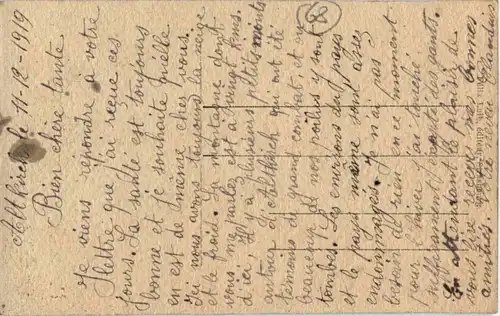 Altkirch le 14-12-1919
Bien chère tante
Je viens répondre à votre
lettre que j'ai reçue ces
jours. La santé est toujours
bonne et je souhaite qu'elle
en est de même chez vous.
Ici nous avons toujours la neige
et le froid. La montagne dont
vous me parlez est à vingt kms.
d'ici, Il y a plusieurs petits monts
autour d'Altkirch qui ont été
témoins de grand combat, et où
beaucoup de nos poilus y sont
tombés. Les environs du pays
et le pays même sont assez
endommagés. Je n'ai pas
besoin de rien en ce moment
pour l'hiver j'ai touché
suffisamment des gants.
En attendant le plaisir de
vous lire recevez mes bonnes
amitiés. Claudius